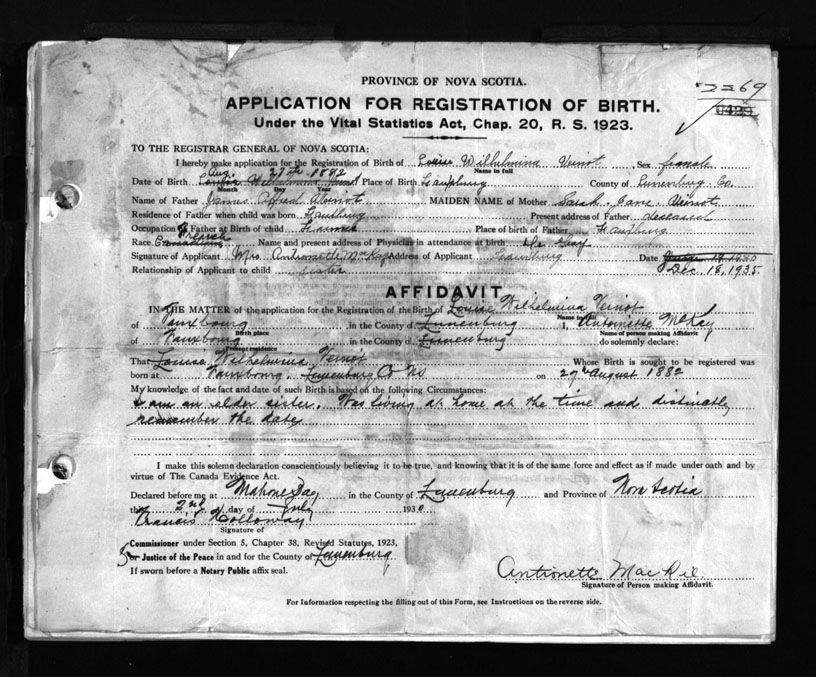 2269
PROVINCE OF NOVA SCOTIA.
APPLICATION FOR REGISTRATION OF BIRTH.
Under the Vital Statistics Act, Chap. 20, R. S. 1923.
TO THE REGISTRAR GENERAL OF NOVA SCOTIA:
I hereby make application for the Registration of Birth of Louise Wilhelmina Veinot Sex female
Name in full
Aug. 27th 1882
Date of Birth Place of Birth County of Lunenburg Co.
Month Day Year
Name of Father James Veinot MAIDEN NAME of Mother Sarah Jane Veinot
Residence of Father when child was born Present address of Father deceased
Occupation of Father at Birth of child Farmer Place of birth of Father
French
Race Canadian Name and present address of Physician in attendance at birth
Signature of Applicant Mrs. Antionette McKay Address of Applicant Date
Dec. 18, 1935
Relationship of Applicant to child sister
AFFIDAVIT
IN THE MATTER of the application for the Registration of the Birth of Louise Wilhelmina Veinot
Name in full
of in the County of Lunenburg I, Antoinette McKay
Birth place Name of person making Affidavit
of in the County of Lunenburg do solemnly declare:
Present residence
That Louise Wilhelmina Veinot Whose Birth is sought to be registered was
born at Lunenburg Co NS on 27th August 1882
My knowledge of the fact and date of such Birth is based on the following Circumstances:
I am an elder sister. Was living at home at the time and distinctly
remember the date
I make this solemn declaration conscientiously believing it to be true, and knowing that it is of the same force and effect as if made under oath and by
virtue of The Canada Evidence Act.
Declared before me at Mahone Bay in the County of Lunenburg and Province of Nova Scotia
this 2nd day of July 1930
Francis Holloway
Signature of
Commissioner under Section 5, Chapter 38, Revised Statutes, 1923,
or Justice of the Peace in and for the County of Lunenburg
If sworn before a Notary Public affix seal.
Antionette
Signature of Person making Affidavit.
For Information respecting the filling out of this Form, see Instructions on the reverse side.